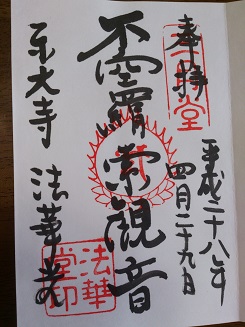 奉拝
三月堂
平成二十八年
四月二十九日
不空羂索観音
東大寺 法華堂
法華
堂印